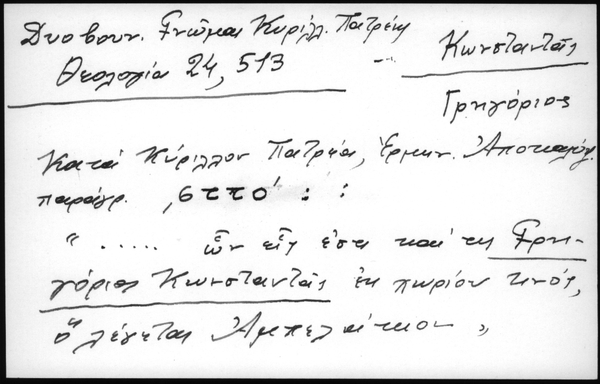 Δυοβουν. Γνῶμαι Κυρίλλ. Πατρέως
Θεολογία 24, 513 - Κωνσταντᾶς
Γρηγόριος
Κατά Κύριλλον Πατρέα, Ἑρμην. Ἀποκαλύψ.
παράγρ. ,ϛττθʹ : :
“ ..... ὧν εἷς ἐστι καί τις Γρη-
γόριος Κωνσταντᾶς ἐκ χωρίου τινός,
ὅ λέγεται Ἀμπελάκιον „